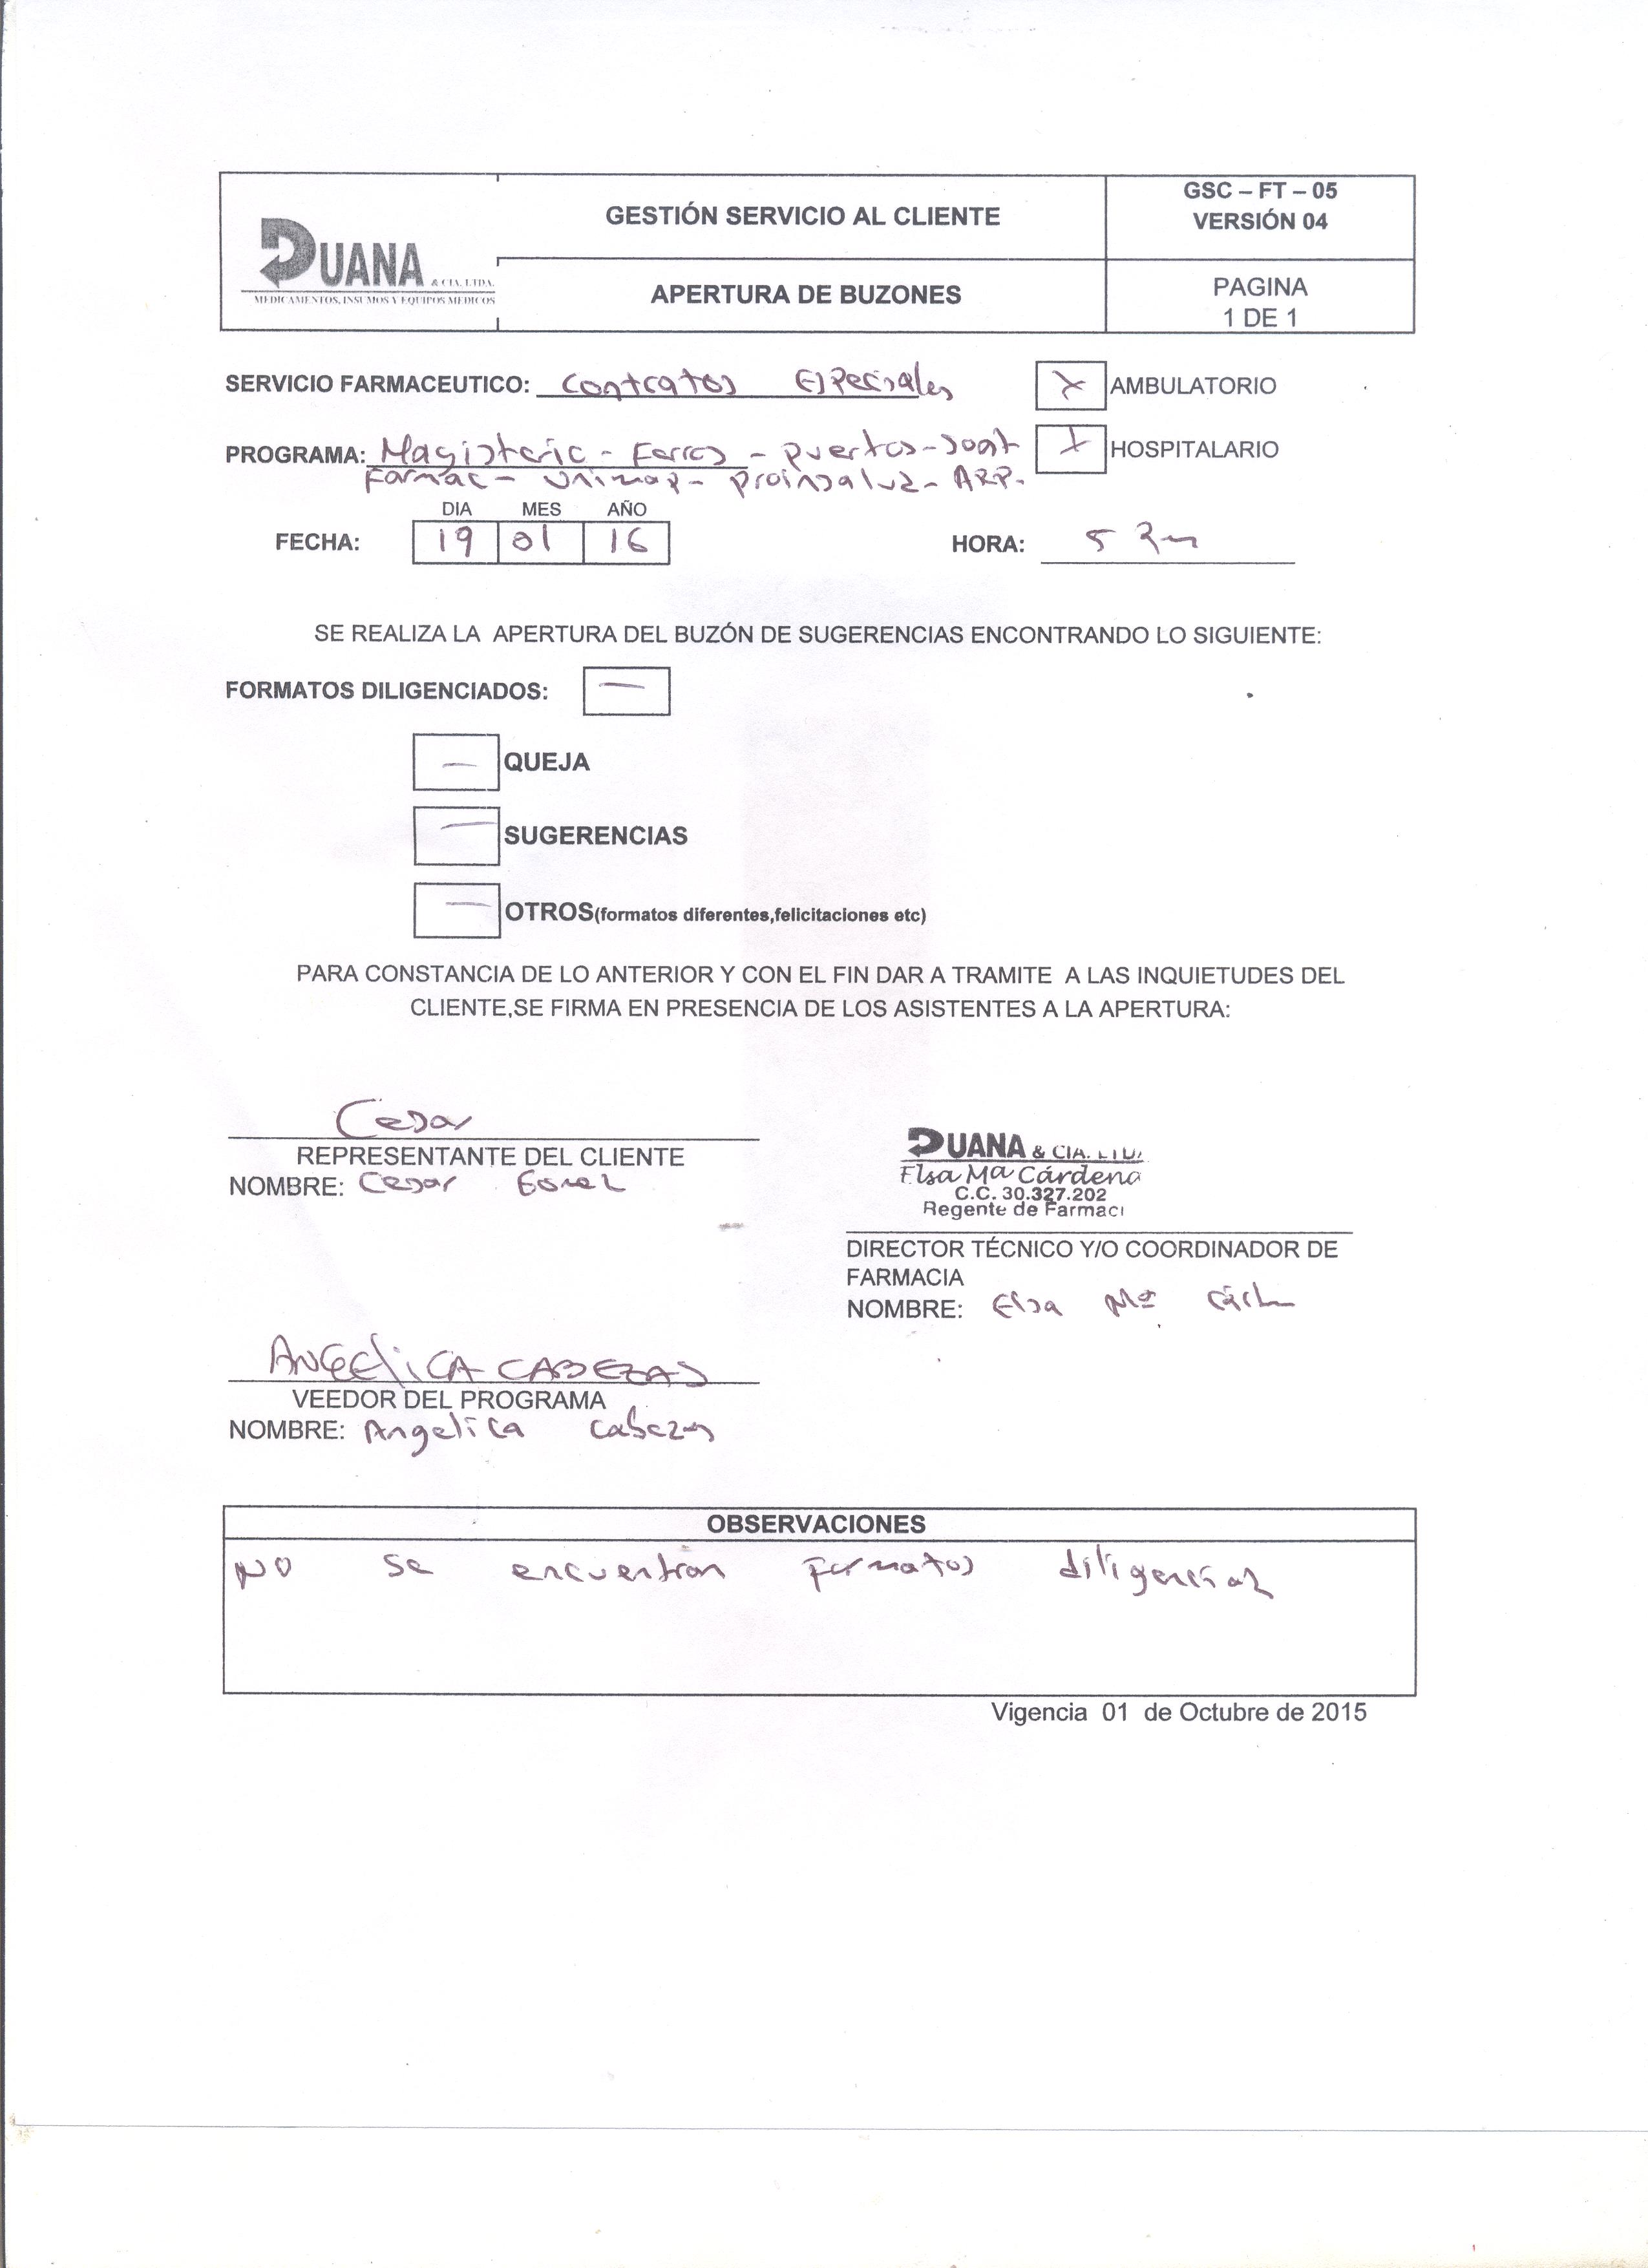 GESTIÓN SERVICIO AL CLIENTE
GSC – FT – 05
VERSIÓN 04
DUANA & CIA. LTDA.
MEDICAMENTOS, INSUMOS Y EQUIPOS MEDICOS
APERTURA DE BUZONES
PAGINA
1 DE 1
SERVICIO FARMACEUTICO: Contratos Especiales
X AMBULATORIO
PROGRAMA: Magisterio - - Puertos - Soat
X HOSPITALARIO
- - Proinsalud - ARP.
DIA MES AÑO
FECHA: 19 01 16
HORA: 5
SE REALIZA LA APERTURA DEL BUZÓN DE SUGERENCIAS ENCONTRANDO LO SIGUIENTE:
FORMATOS DILIGENCIADOS: —
— QUEJA
— SUGERENCIAS
— OTROS(formatos diferentes,felicitaciones etc)
PARA CONSTANCIA DE LO ANTERIOR Y CON EL FIN DAR A TRAMITE A LAS INQUIETUDES DEL
CLIENTE,SE FIRMA EN PRESENCIA DE LOS ASISTENTES A LA APERTURA:
Cesar
REPRESENTANTE DEL CLIENTE
NOMBRE: Cesar
DUANA & CIA. LTD
Elsa Mª Cárdena
C.C. 30.327.202
Regente de Farmaci
DIRECTOR TÉCNICO Y/O COORDINADOR DE
FARMACIA
NOMBRE: Elsa Mª
ANGELICA CABEZAS
VEEDOR DEL PROGRAMA
NOMBRE: Angelica Cabezas
OBSERVACIONES
NO se encuentran formatos
Vigencia 01 de Octubre de 2015